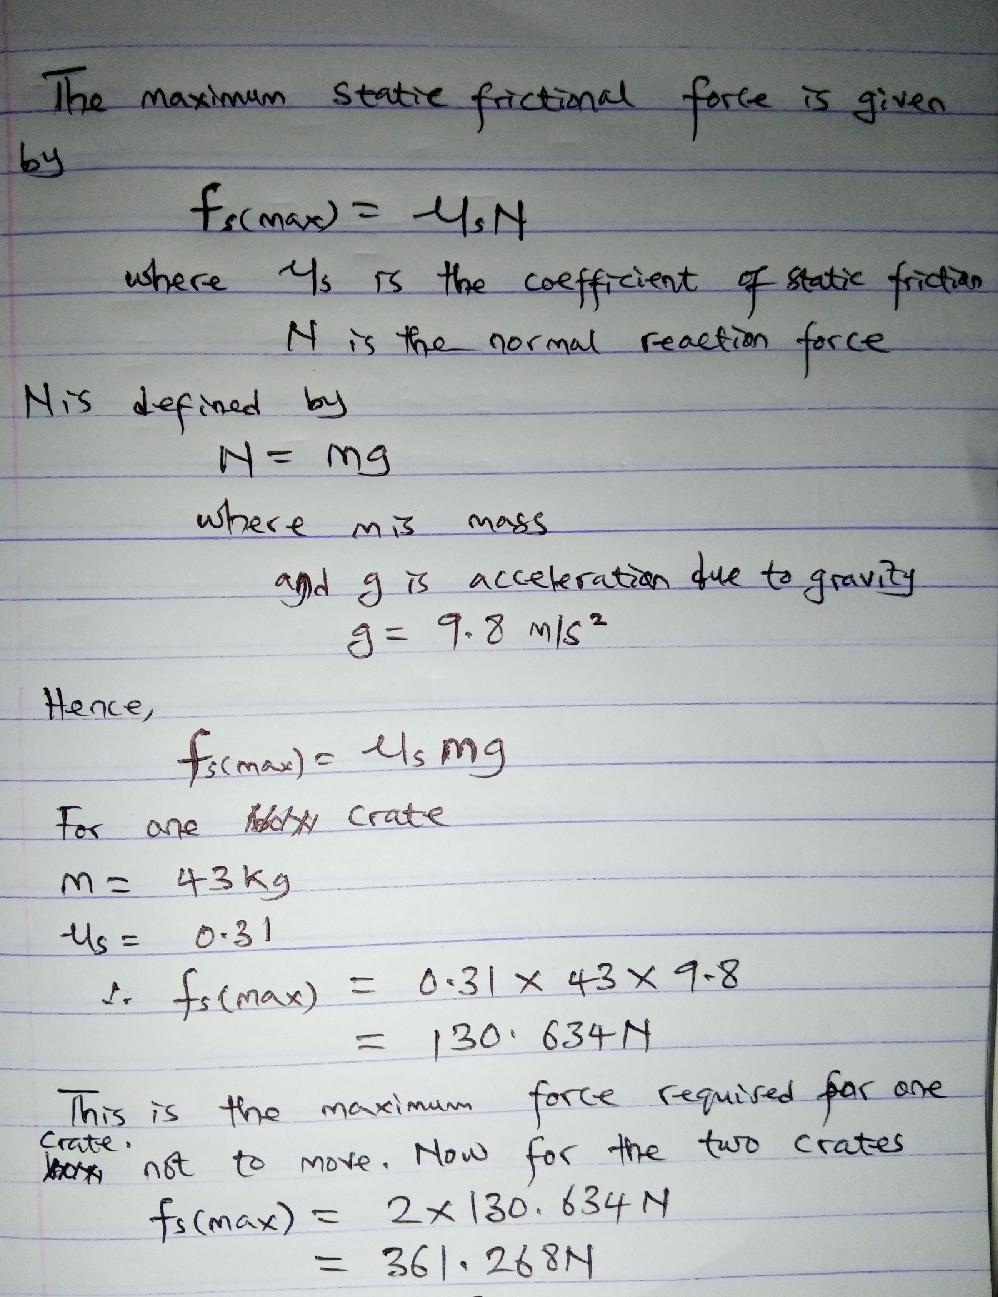 The maximum static frictional force is given
by
fs(max) = μsN
where μs is the coefficient of static friction
N is the normal reaction force
N is defined by
N = mg
where m is mass
and g is acceleration due to gravity
g = 9.8 m/s²
Hence,
fs(max) = μs mg
For one crate
m = 43 kg
μs = 0.31
∴ fs(max) = 0.31 × 43 × 9.8
= 130.634N
This is the maximum force required for one
crate.
not to move. Now for the two crates
fs(max) = 2 × 130.634 N
= 361.268N